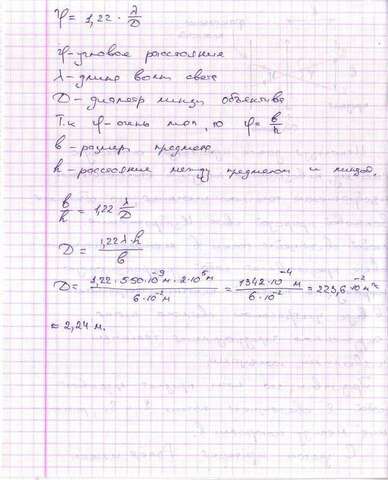 φ = 1,22 · λ/D
φ - угловое расстояние
λ - длина волны света
D - диаметр линзы объектива
Т.к φ - очень мал, то φ = b/h
b - размер предмета,
h - расстояние между предметом и линзой.
b/h = 1,22 λ/D
D = 1,22λ·h/b
D = 1,22·550·10⁻⁹м·2·10⁵м/6·10⁻²м = 1342·10⁻⁴м/6·10⁻² = 223,6·10⁻²м =
= 2,24 м.